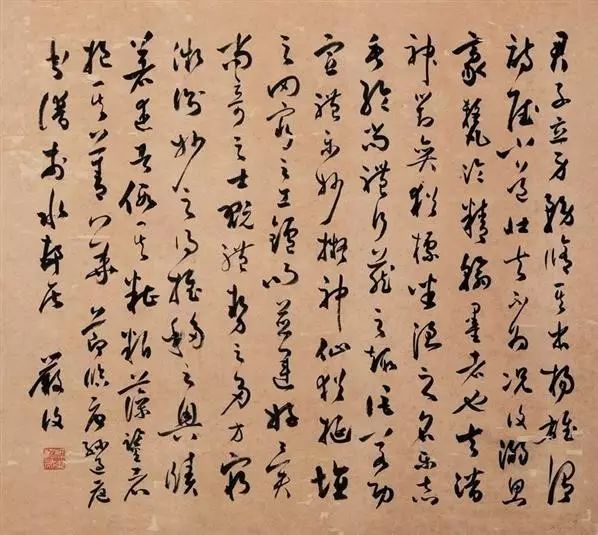 君子立身務脩其本揚雄謂
詩賦小道壯夫不為況復溺思
豪氂淪精翰墨者也夫潛
神對奕猶標坐隱之名樂志
垂綸尚體行藏之趣詎若功
宣禮樂妙擬神仙猶埏埴
之罔窮與工鑪而並運好異
尚奇之士翫體勢之多方窮
微測妙之得推移之奧賾
著述者假其糟粕藻鑒者
挹其菁華 節臨唐孫過庭
書譜於水軒
嚴復